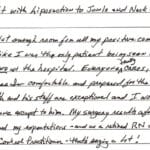 it with Liposuction to Jowls and Neck
not enough room for all my positive com
like I was the only patient being seen
were at the hospital. Everyone
me comfortable and prepared for the
and his staff are exceptional and I wou
accept to him. My surgery results aft
my expectations - and as a retired RN
Control Practitioner - that's saying a lot!